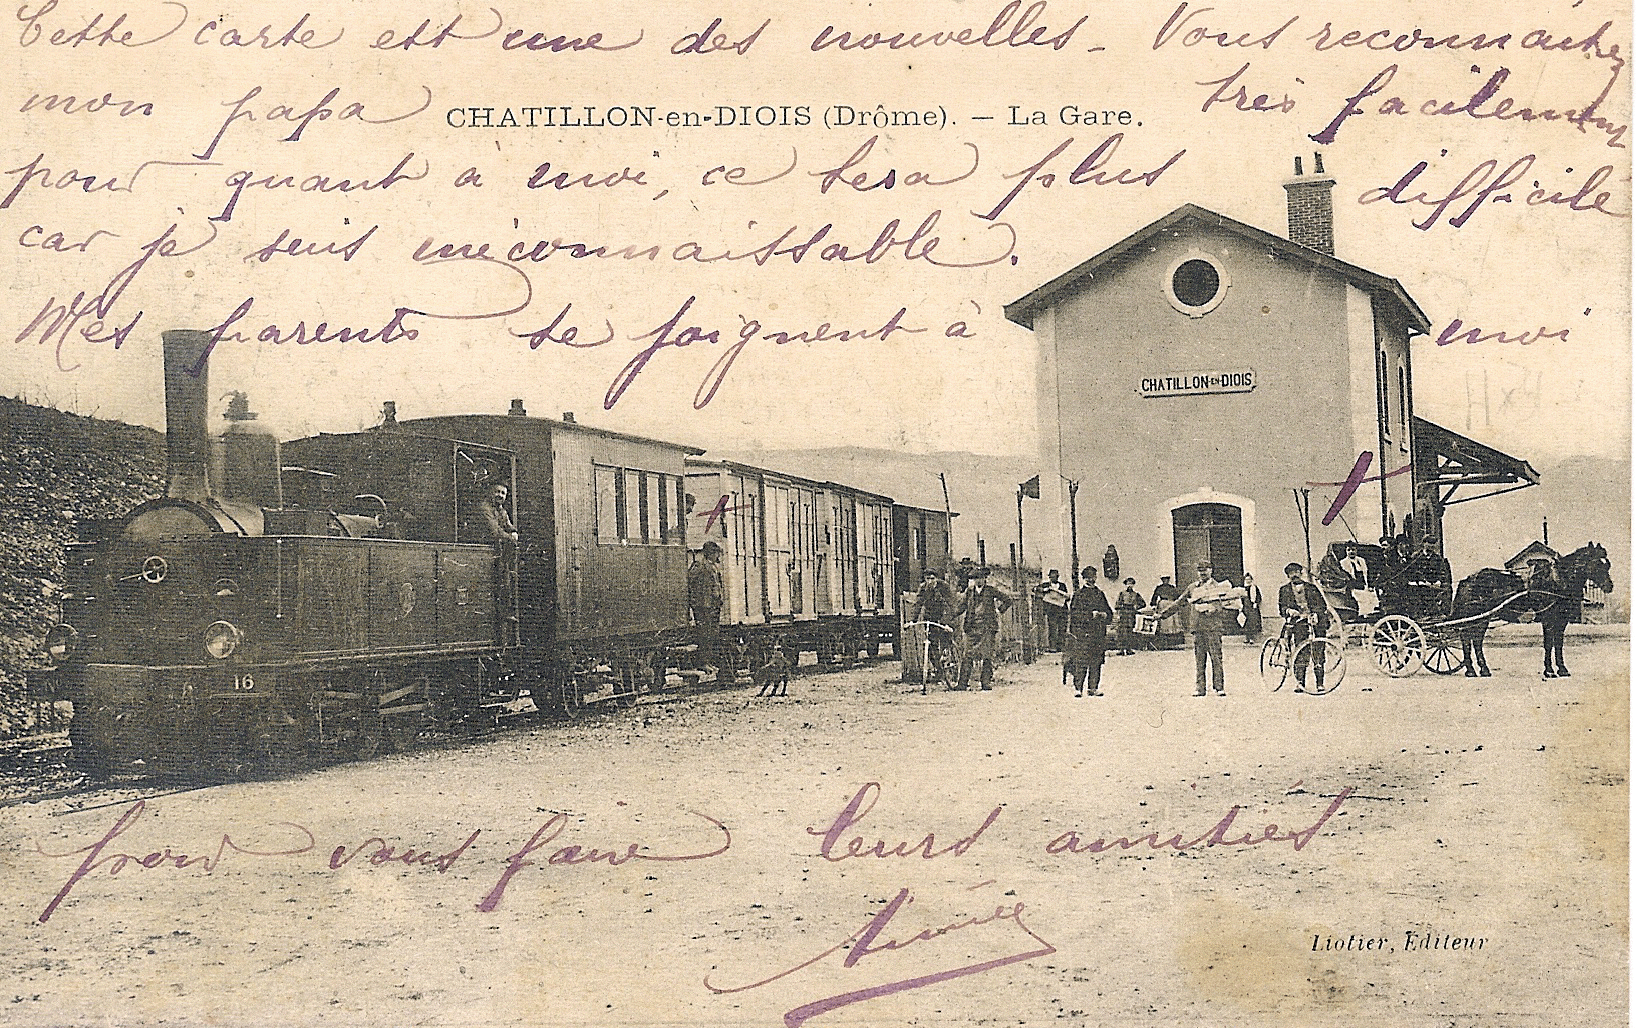 Cette carte est une des nouvelles - Vous reconnaitrez
mon papa très facilement
CHATILLON-en-DIOIS (Drôme). — La Gare.
pour quant à moi, ce sera plus difficile
car je suis méconnaissable.
Mes parents se joignent à moi
CHATILLON-EN-DIOIS
16
pour vous faire leurs amitiés
Aimée
Liotier, Éditeur